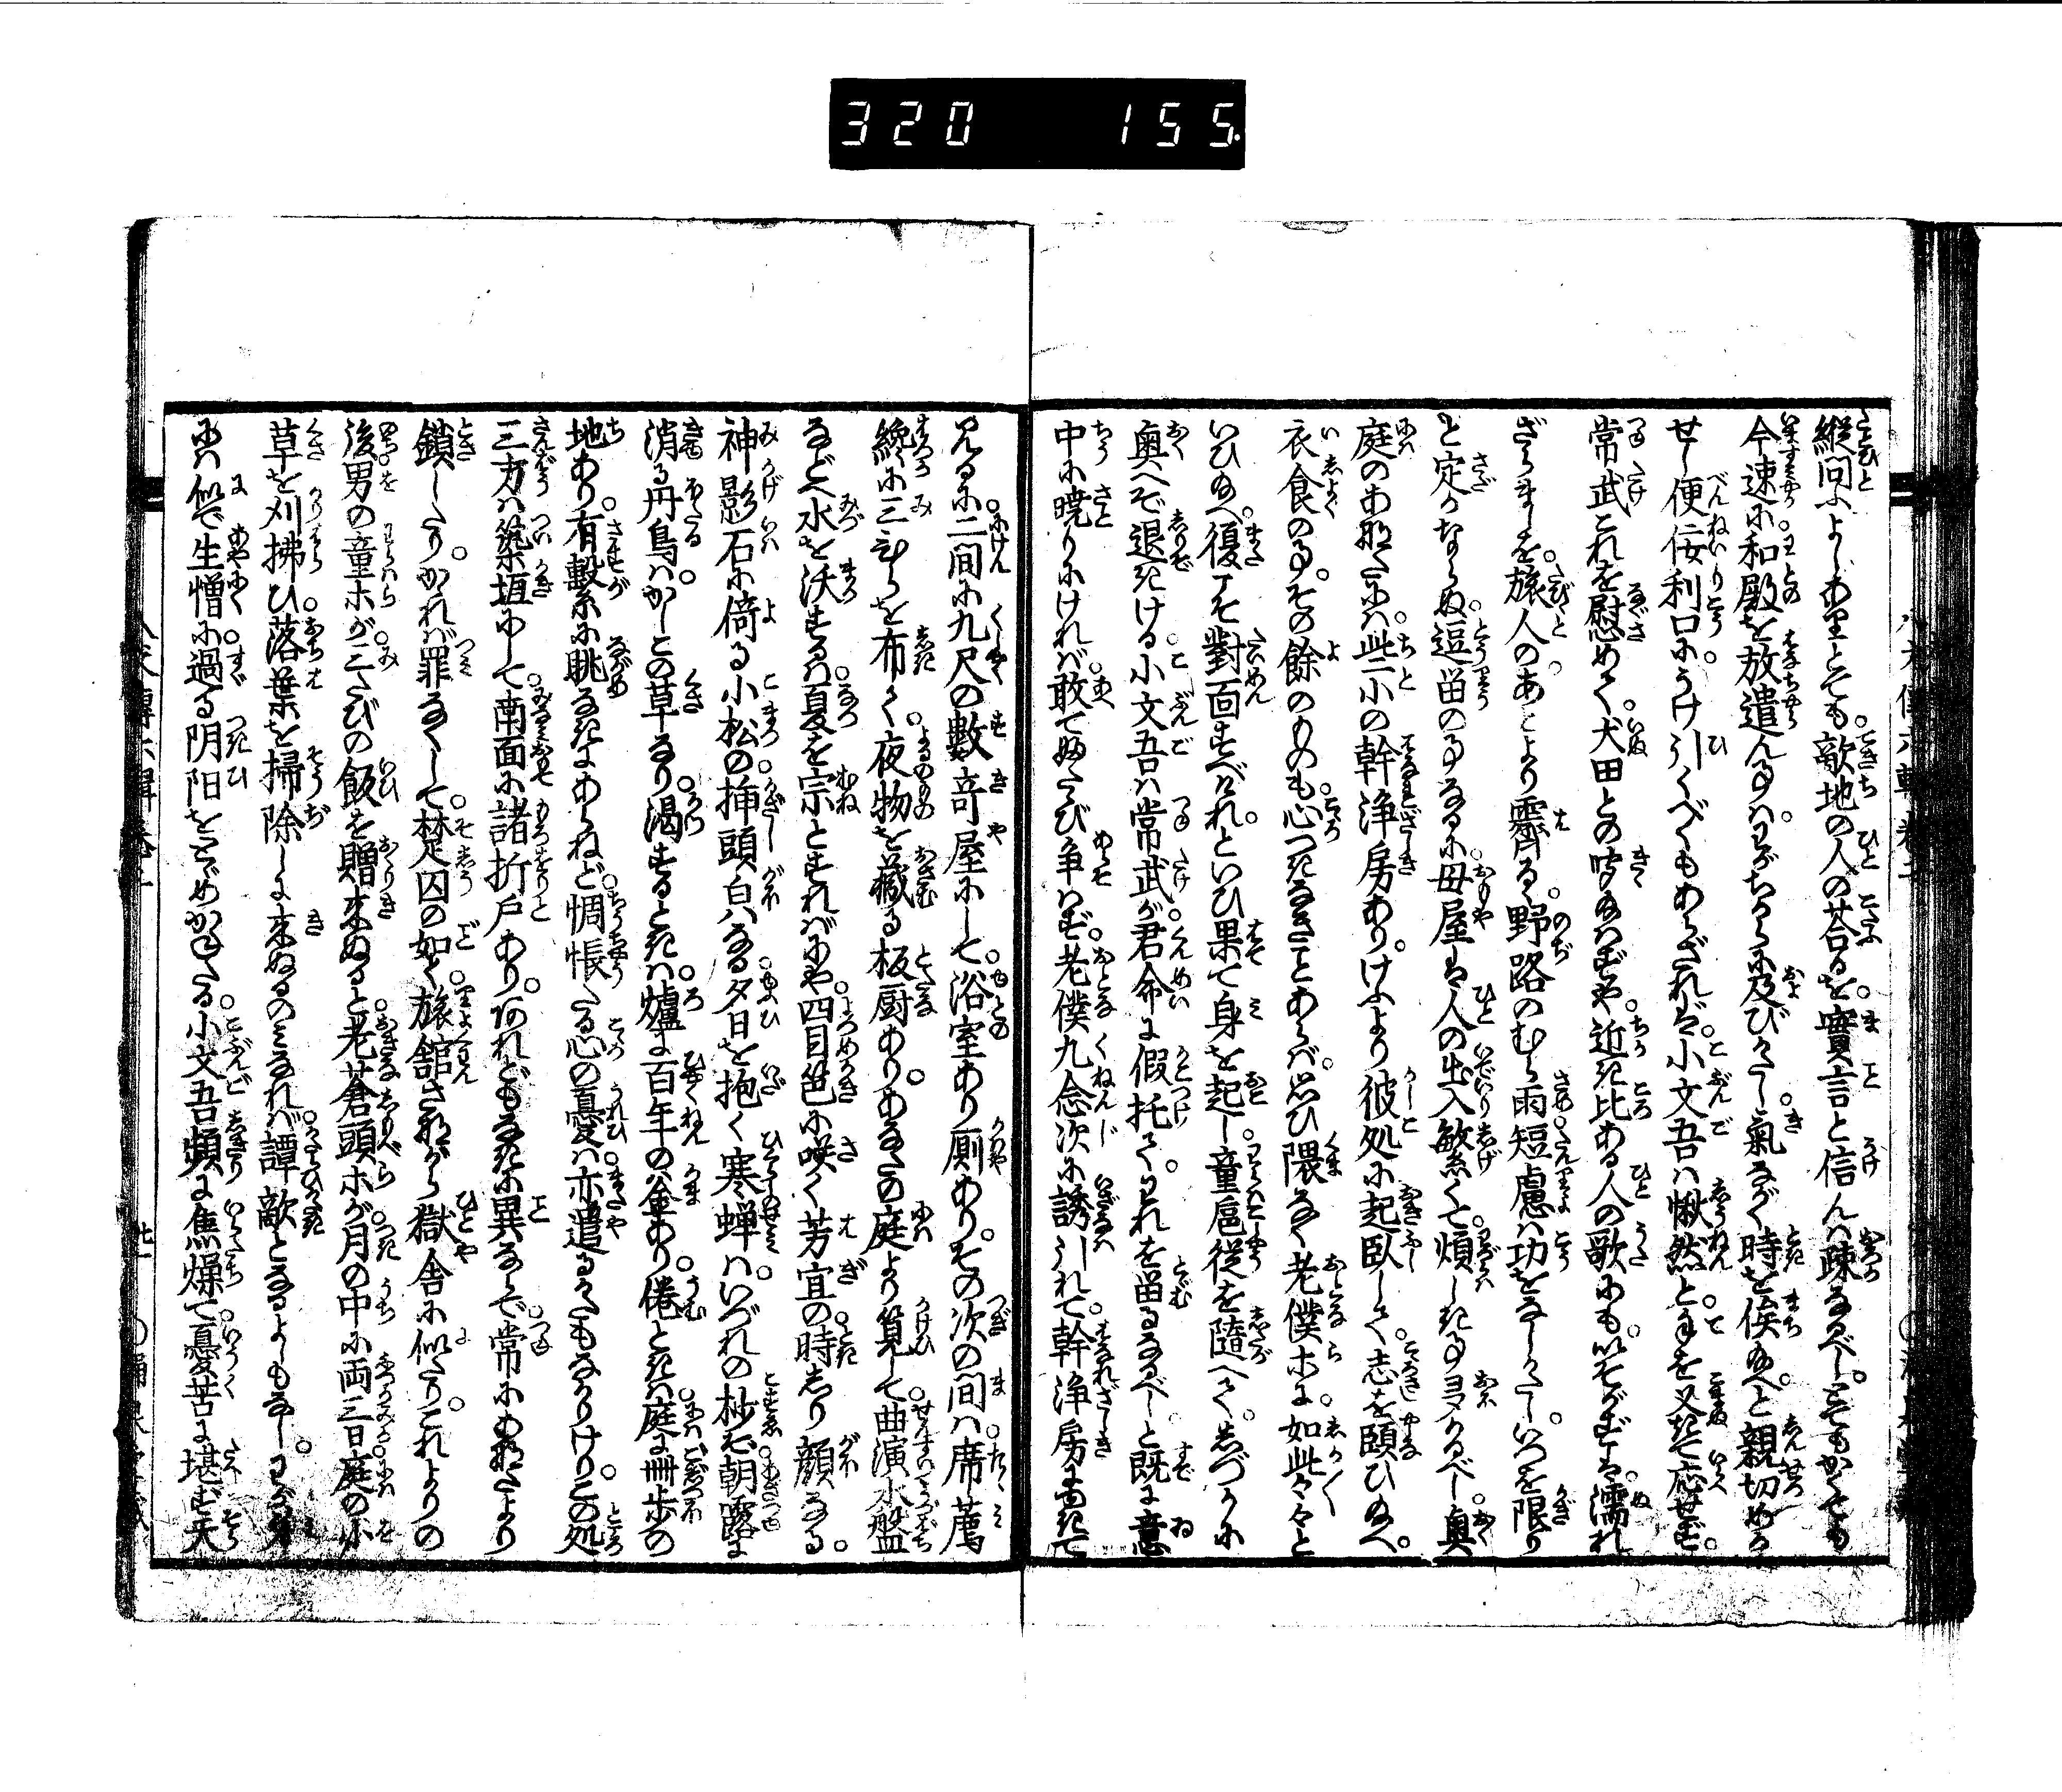 320 155.
縦問によしありとても敵地の人の荅るを實言と信んは疎なるべしとてもかくても
今速に和殿を放遣ん事はわがちからに及びがたし氣ながく時を俟給へと親切めか
せし便佞利口にうけ引くべくもあらざれど小文吾は愀然と手を叉きて応せず
常武これを慰めて犬田どの聞給はずや近き比ある人の歌にもいそがずば濡れ
ざらましを旅人のあとより霽るゝ野路のむら雨短慮は功をなしがたしいつを限り
と定かならぬ逗留の事なるに母屋は人の出入繁くて煩しき事多かるべし奥
庭のあなたには些小の幹浄房ありけふより彼処に起臥して志を頤ひ給へ
衣食の事その餘のものも心つきなきことあらば思ひ隈なく老僕ホに如此々々と
いひ給へ復こそ對面すべけれといひ果て身を起し童扈従を隨へてしづかに
奥へぞ退きける小文吾は常武が君命に假托てわれを留るなるべしと既に意
中に暁りにければ敢てふたゝび争はず老僕九念次に誘引れて幹浄房に赴きて
見るに二間に九尺の數奇屋にして浴室あり厠ありその次の間は席薦
纔に三ひらを布く夜物を藏る板厨ありあなたの庭より筧して曲演水盤
などへ水を沃するは夏を宗とすればにや四目笆に咲く芳宜の時しり顔なる
神影石に倚る小松の挿頭白はなる夕日を抱く寒蝉はいづれの杪ぞ朝露に
消る丹鳥はかしこの草なり渇するときは爐に百年の釜あり倦ときは庭に卌歩の
地あり有繋に眺なきにあらねど惆悵たる心の憂は亦遣るかたもなかりけりこの処
三方は築垣にして南面に諸折戸ありされどもなきに異ならで常にあなたより
鎖したりかゝれば罪なくして楚囚の如く旅舘さながら獄舎に似たりこれよりの
後男の童ホが三たびの飯を贈来ぬると老蒼頭ホが月の中に両三日庭の小
草を刈拂ひ落葉を掃除しに来ぬるのみなれば譚敵となるよしもなしわが身
には似で生憎に過る阴阳をとゞめかねたる小文吾頻に焦燥て憂苦に堪ず天